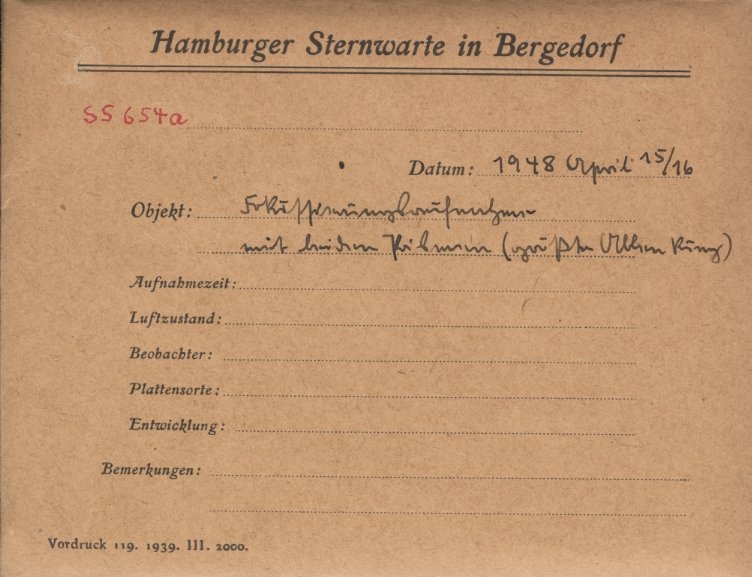 Hamburger Sternwarte in Bergedorf
SS 654a
Datum: 1948 April 15/16
Objekt: Fokussierungsaufnahmen
mit beiden Prismen (größte Ablenkung)
Aufnahmezeit:
Luftzustand:
Beobachter:
Plattensorte:
Entwicklung:
Bemerkungen:
Vordruck 119. 1939. III. 2000.